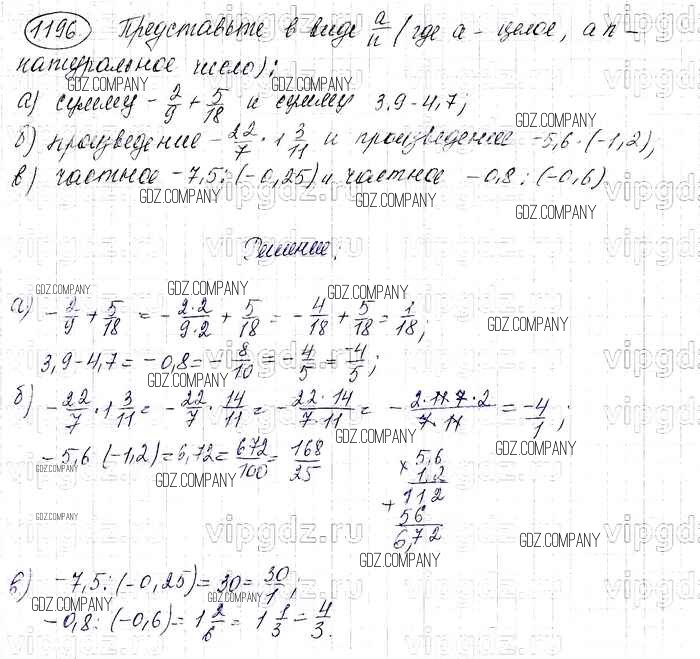 1196 Представьте в виде a/n (где a - целое, а n -
натуральное число):
а) сумму -2/9 + 5/18 и сумму 3,9-4,7;
б) произведение -22/7 · 1 3/11 и произведение -5,6·(-1,2);
в) частное -7,5:(-0,25) и частное -0,8:(-0,6)
Решение:
а) -2/9 + 5/18 = -2·2/9·2 + 5/18 = -4/18 + 5/18 = 1/18;
3,9-4,7 = -0,8 = -8/10 = -4/5 = -4/5;
б) -22/7 · 1 3/11 = -22/7 · 14/11 = -22·14/7·11 = -2·11·7·2/7·11 = -4/1;
-5,6·(-1,2) = 6,72 = 672/100 = 168/25
× 5,6
1,2
112
+ 56
6,72
в) -7,5:(-0,25) = 30 = 30/1;
-0,8:(-0,6) = 1 2/6 = 1 1/3 = 4/3.
GDZ.COMPANY
vipgdz.ru